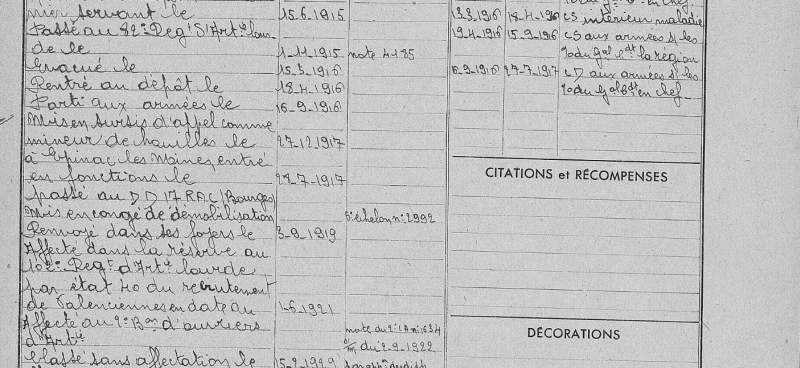 mier servant le 15.6.1915
Passé au 82e Regt d'Artie lour-
de le 1.11.1915 note 4185
Evacué le 15.3.1916
Rentré au dépôt le 18.4.1916
Parti aux armées le 16.9.1916
Mis en sursis d'appel comme
mineur de houilles le 27.12.1917
à Epinac les Mines, entré
en fonctions le 28.7.1917
passé au D D 17 R.A.C (Bourges)
Mis en congé de démobilisation 6e échelon n: 2992
Renvoyé dans ses foyers le 3.9.1919
Affecté dans la réserve au
102e Regt d'Artie lourde
par état 40 du recrutement
de Valenciennes en date du 1.6.1921
Affecté au 2e Bon d'ouvriers note du 2e CA n: 1634
d'Artie du 2.9.1922
Classé sans affectation le
13.3.1916 18.4.1916 CS intérieur maladie
19.4.1916 15.9.1916 CS aux armées s/ les
Jo du gal Cdt la région
16.9.1916 27.7.1917 CD aux armées s/ les
Jo du Gal en chef
CITATIONS et RÉCOMPENSES
DÉCORATIONS